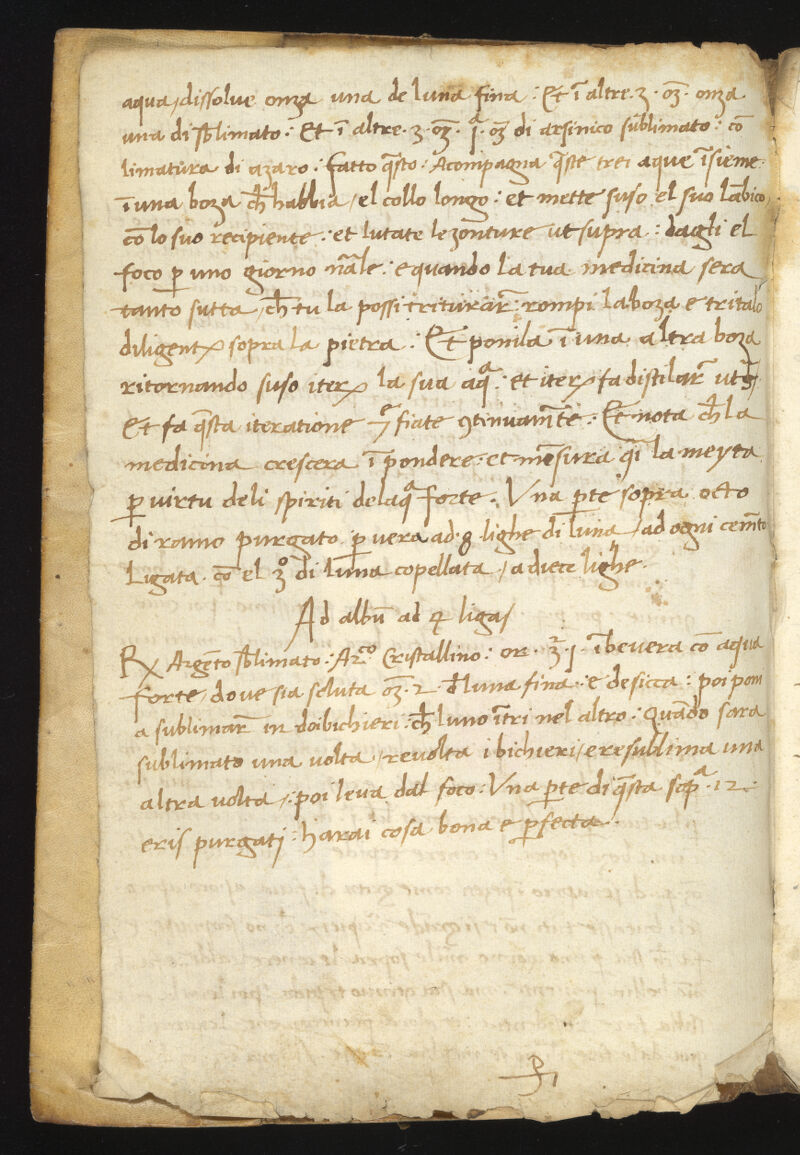 aqua, dissolve onza una de luna fina: Et ī altre .3. oz̄. onza
una di sb̄limato: Et ī altre .3. oz̄. j. oz̄ di arsinico sublimato: cō
limatura di azaro: fatto q̄sto: Acompagna q̄ste trei aque īsieme:
ī una boza ch̄ habbia, el collo longo: et mette suso el suo lābico,
cō lo suo recipiente: et lutate le zonture ut supra: dagli el
foco p̱ uno giorno n̄ale: e quando la tua medicina sera
tanto sutta, ch̄ tu la possi triturar̄: rompi la boza e tritalo
diligent̄ sopra la pietra: Et ponila ī una altra boza
ritornando suso iter̄ la sua aq̄: et iter̄ fa distilar̄ ut s̄
Et fa q̄sta iteratione 7 fiate ꝯtinuam̄te: Et nota ch̄ la
medicina crescera ī pondere: et mēsura q̄i la meyta
p̱ virtu deli spiriti delaq̄ forte. Una p̱te sopra octo
di ramo purgato p̱ vera ad .8. lighe di luna, ad ogni cem̄to
Ligata cō el 3° di luna copellata, a diece lighe.
Ad albū ad 4 ligas
℞ Argēto sb̄limato: Ar.co Cristallino: an̄ ℥. j. ībevera cō aqua
forte, dove sia soluta oz̄. 2. d̄ luna fina. e desicca: poi poni
a sublimar̄ in doi bichieri: ch̄ luno ītri nel altro: Quādo sara
sublimato una volta, revolta i bichieri, e resublima una
altra volta, poi leva dal foco: Una p̱te di q̄sta sop̄ .12.
eris purgati: harai cosa bona e p̱fecta.